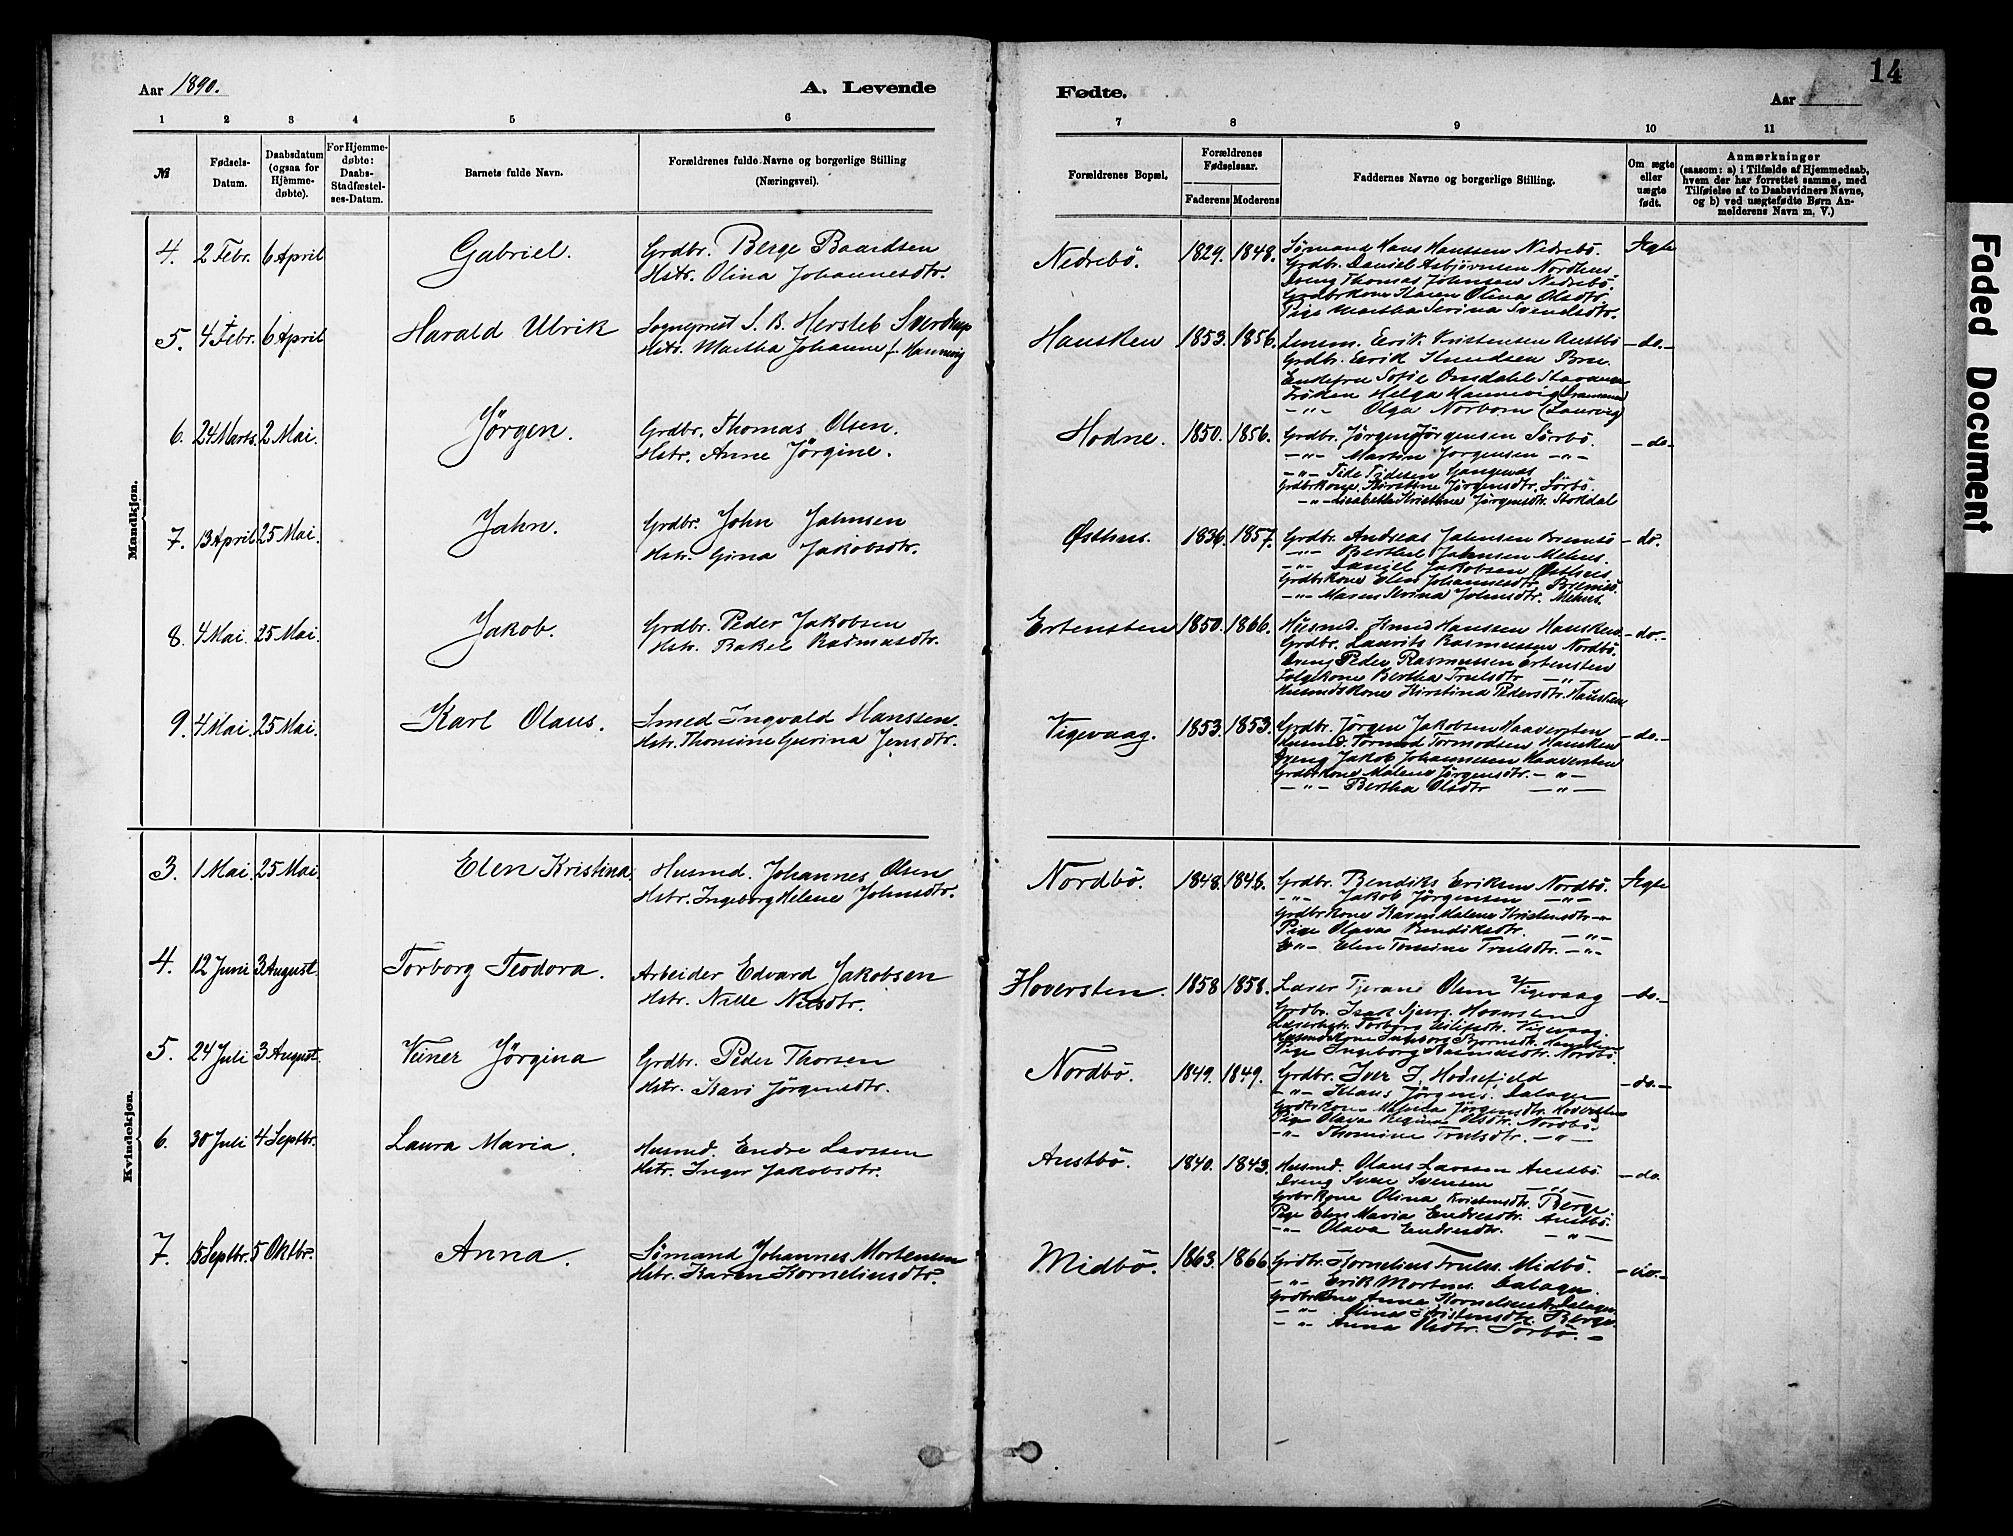 Aar 1890.
A. Levende
Fødte.
14
Aar
1 2 3 4 5 6 7 8 9 10 11
№
Fødsels-Datum.
Daabsdatum (ogsaa for Hjemmedøbte).
For Hjemmedøbte: Daabs-Stadfæstelses-Datum.
Barnets fulde Navn.
Forældrenes fulde Navne og borgerlige Stilling (Næringsvei).
Forældrenes Bopæl.
Forældrenes Fødselsaar.
Faderens Moderens
Faddernes Navne og borgerlige Stilling.
Om ægte eller uægte født.
Anmærkninger
(saasom: a) i Tilfælde af Hjemmedaab, hvem der har forrettet samme, med Tilføielse af to Daabsvidners Navne, og b) ved uægtefødte Børn Anmelderens Navn m. V.)
Mandkjøn.
4. 2 Febr. 6 April Gabriel. Grdbr. Berge Baardsen
Hstr. Olina Johannesdtr.
Nedrebö. 1829. 1848. Sømand Hans Hanssen Nedrebö. Ægte
Grdbr. Daniel Asbjørnsen Nordhus.
Dreng Thomas Johnsen Nedrebö.
Grdbrkone Karen Olina Olsdtr.
Pige Martha Serina Svendsdtr.
5. 4 Febr. 6 April Harald Ulrik Sogneprest S. B. Hersleb Sverdrup
Hstr. Martha Johanne f. Hannevig
Hausken 1853. 1856. Lensm. Eerik Kristensen Austbö -do.-
Grdbr. Eerik Knudsen Bru.
Enkefru Sofie Omdahl Stavanger
Frøken Helga Hannevig (Drammen)
-"- Olga Norborn (Laurvig)
6. 24 Marts. 2 Mai. Jörgen. Grdbr. Thomas Olsen.
Hstr. Anne Jörgine.
Hodne. 1850. 1856. Grdbr. Jörgen Jörgensen Sörbö. -do-
-"- Martin Jörgensen -"-
-"- Tide Tidesen
Grdbrkone Kirstine Jörgensdtr. Sörbö.
-"- Lisabeth Kristine Jörgensdtr. Stokdal
7. 13 April 25 Mai. Jahn. Grdbr. John Jahnsen
Hstr. Gina Jakobsdtr.
Østhus. 1836. 1857. Grdbr. Andreas Jahnsen Bremsö -do.
-"- Berthel Jahnsen Mehus.
-"- Daniel Jakobsen Østhus
Grdbrkone Elen Johannesdtr. Bremsö.
-"- Maren Serina Johnsdtr. Mehus.
8. 4 Mai. 25 Mai. Jakob. Grdbr. Peder Jakobsen
Hstr. Rakel Rasmusdtr.
Ertensten 1850. 1866. Husmd. Knud Hanssen Hausken -do.-
Grdbr. Laurits Rasmussen Nordbö
Dreng Peder Rasmussen Ertensten
Folgkone Bertha Trulsdtr -"-
Husmdskone Kirstina Pedersdtr. Hausken
9. 4 Mai. 25 Mai. Karl Olaus. Smed Ingvald Hanssen
Hstr. Thomine Gurina Jensdtr.
Vigevaag. 1853. 1853. Grdbr. Jörgen Jakobsen Haaversten -do.-
Husmd. Tormod Tormodsen Hausken
Dreng Jakob Johannessen Haaversten
Grdbrkone Malene Jörgensdtr. -"-
-"- Bertha Olsdtr -"-
Kvindekjøn.
3. 1 Mai. 25 Mai. Elen Kristina Husmd. Johannes Olsen
Hstr. Ingeborg Helene Johnsdtr.
Nordbö. 1848. 1848. Grdbr. Bendiks Eriksen Nordbö. Ægte
-"- Jakob Jörgensen -"-
Grdbrkone Karen Malene Kristensdtr -"-
Pige Olava Bendiksdtr. -"-
-"- Elen Tomine Trulsdtr. -"-
4. 12 Juni 3 August. Torborg Teodora. Arbeider Edvard Jakobsen
Hstr. Nille Nilsdtr.
Hoversten. 1858 1858. Lærer Tjerand Olsen Vigevaag -do.-
Grdbr. Isak Hoversten
Torborg Eilifsdtr. Vigevaag.
Husmdskone Ingeborg Bjørnsdtr. Hausken
Pige Ingeborg Rasmusdtr. Nordbö.
5. 24 Juli 3 August. Veiner Jörgina Grdbr. Peder Thorsen
Hstr. Kari Jörgensdtr.
Nordbö. 1849. 1849. Grdbr. Iver J. Hodnefjeld -do.-
-"- Klaus Jörgens. Dalagn
Grdbrkone Malena Jörgensdtr. Hoversten
Pige Olava Regine Olsdtr. Nordbö.
-"- Thomine Trulsdtr. -"-
6. 30 Juli 4 Septbr. Laura Maria. Husmd. Endre Larssen
Hstr. Inger Jakobsdtr.
Austbö. 1840. 1843. Husmd. Olaus Larssen Austbö. -do.
Dreng Sven Svensen -"-
Grbrkone Olina Kristensdtr. Berge.
Pige Elen Maria Endresdtr. Austbö.
-"- Olava Endresdtr. -"-
7. 15 Septbr. 5 Oktbr. Anna. Sömand Johannes Mortensen
Hstr. Karen Korneliusdtr.
Midbö. 1863. 1866 Grdbr. Kornelius Truls. Midbö. -do.-
-"- Erik Mortens. Dalagn.
Grdbrkone Anna Korneliusdtr. Dalagn.
-"- Olina Kristensdtr. Berge.
-"- Anna Olsdtr. Sörbö. -
Faded Document